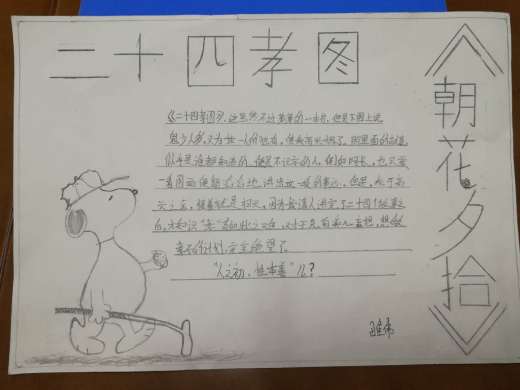 二十四孝图
《朝花夕拾》
《二十四孝图》，这虽然不过薄薄的一本书，但是下图上说
鬼少人多，又为我一人所独有，使我高兴极了。那里面的故事
似乎是谁都知道的，便是不识字的人，例如阿长，也只要
一看图画便能滔滔地讲出这一段的事迹。但是，我于高
兴之余，接着就是扫兴，因为我请人讲完了二十四个故事之
后，才知道“孝”有如此之难，对于先前
来的计划，完全绝望了。
“人之初，性本善”么？